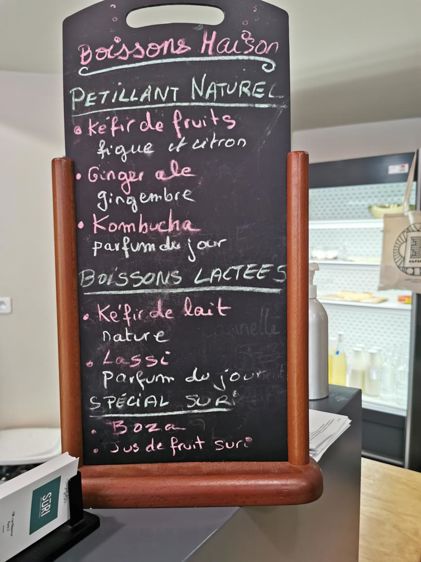 Boissons Maison
PETILLANT NATUREL
• Kéfir de fruits
figue et citron
• Ginger ale
gingembre
• Kombucha
parfum du jour
BOISSONS LACTEES
• Kéfir de lait
nature
• Lassi
Parfum du jour
SPÉCIAL SURI
• Boza
• Jus de fruit suri
SURI